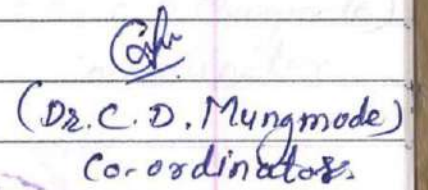 (Dr. C. D. Mungmode)
Co-ordinator.